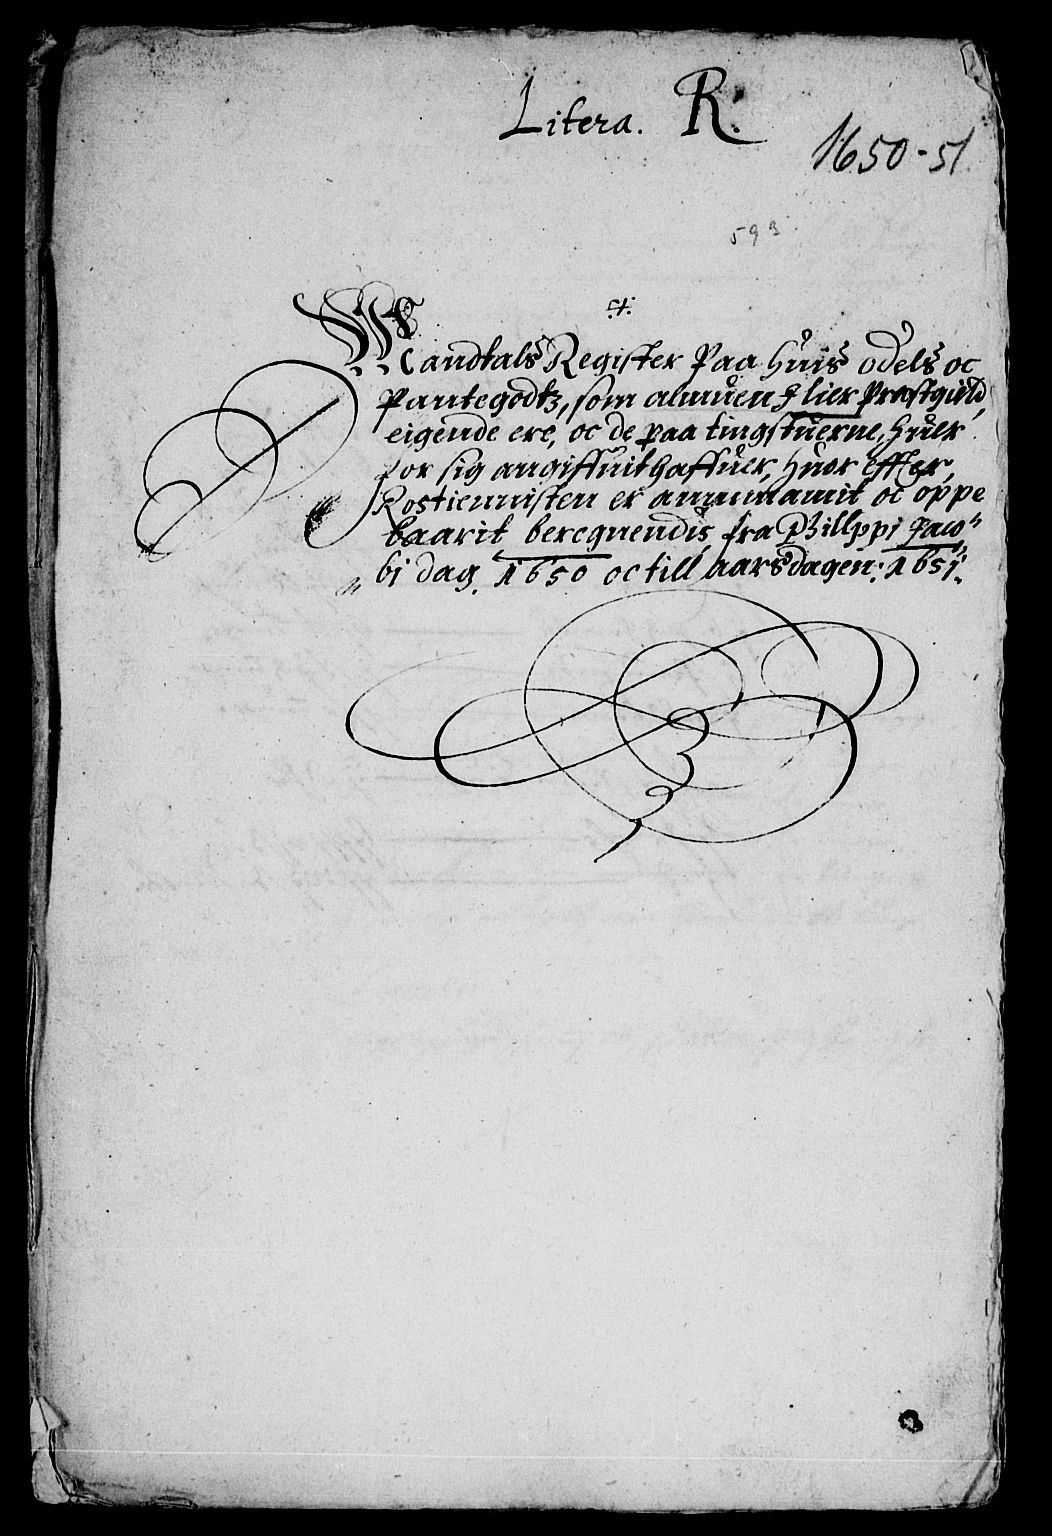 Litera. R.
1650-51
593
Mandtals Register Paa huis odels oc
Pantegodtz, som almuen J lier Præstgield,
eigende ere, oc de paa tingstuerne, huer
for sig angiffuit haffuer, huor effter,
Rostiennisten er annammit oc oppe
baarit beregnendis fra Phillppi Jaco"
bi dag. 1650 oc till aarsdagen: 1651.